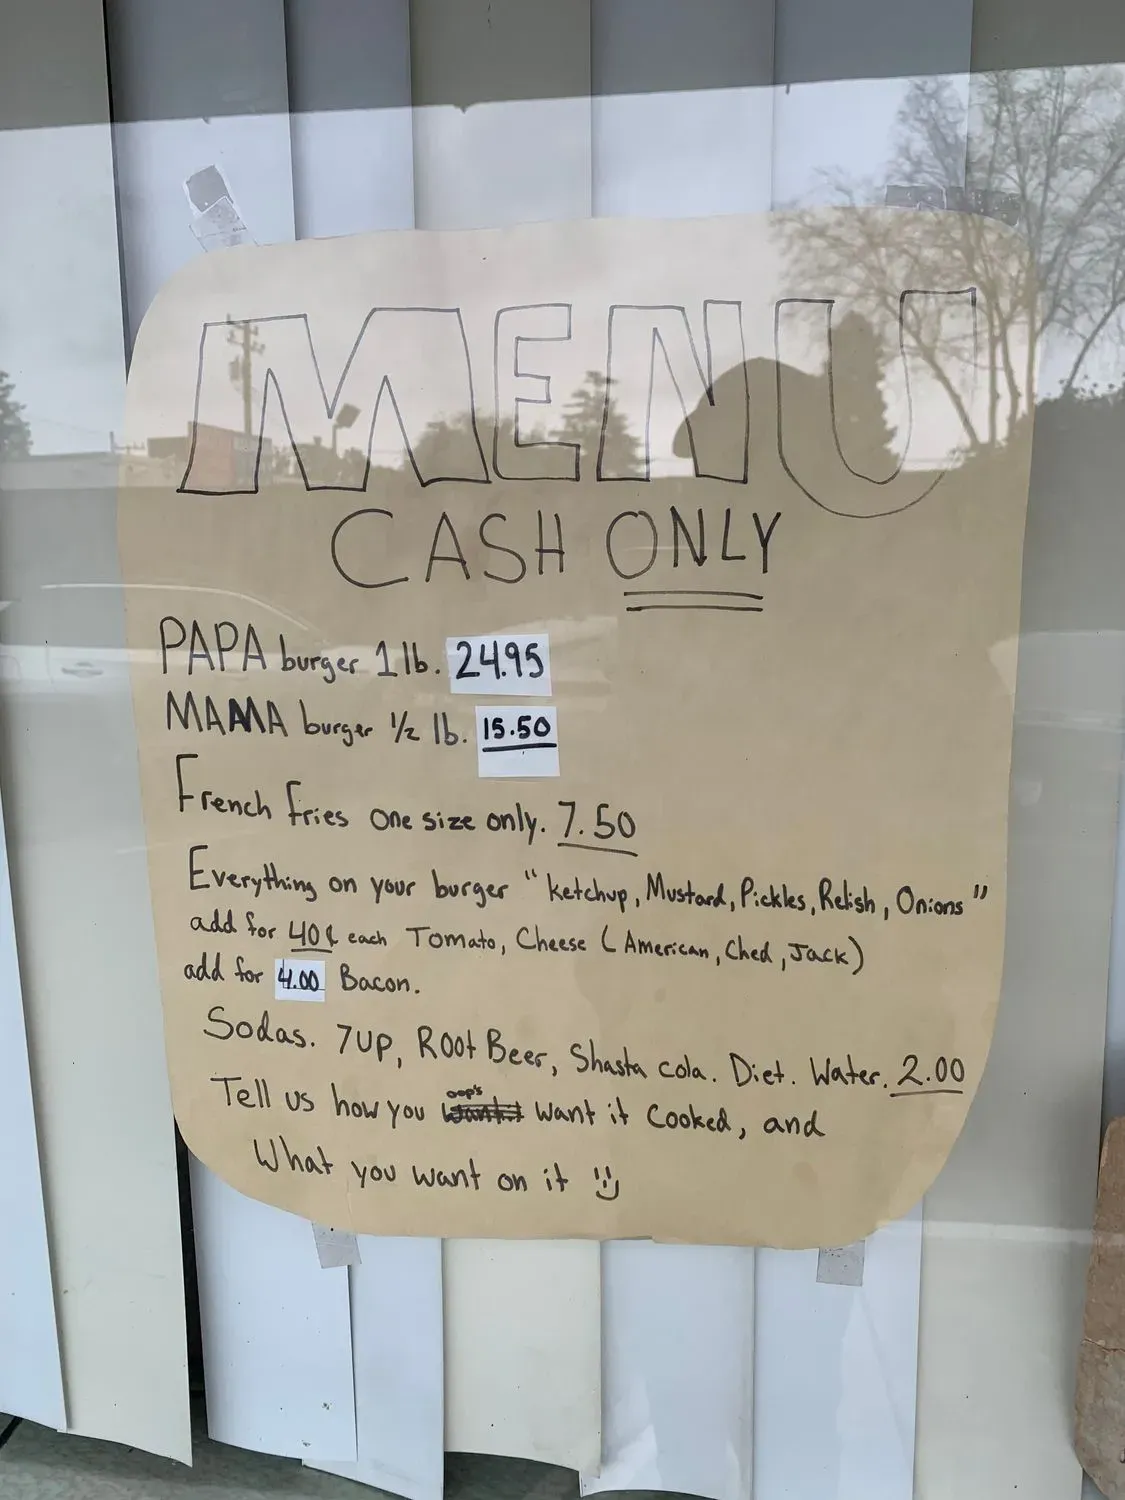 MENU
CASH ONLY
PAPA burger 1 lb. 24.95
MAMA burger 1/2 lb. 15.50
French Fries one size only. 7.50
Everything on your burger "ketchup, Mustard, Pickles, Relish, Onions"
add for 40¢ each Tomato, Cheese (American, Ched, Jack)
add for 4.00 Bacon.
Sodas. 7UP, ROOt Beer, Shasta cola. Diet. Water. 2.00
oop's
Tell us how you want it cooked, and
What you want on it